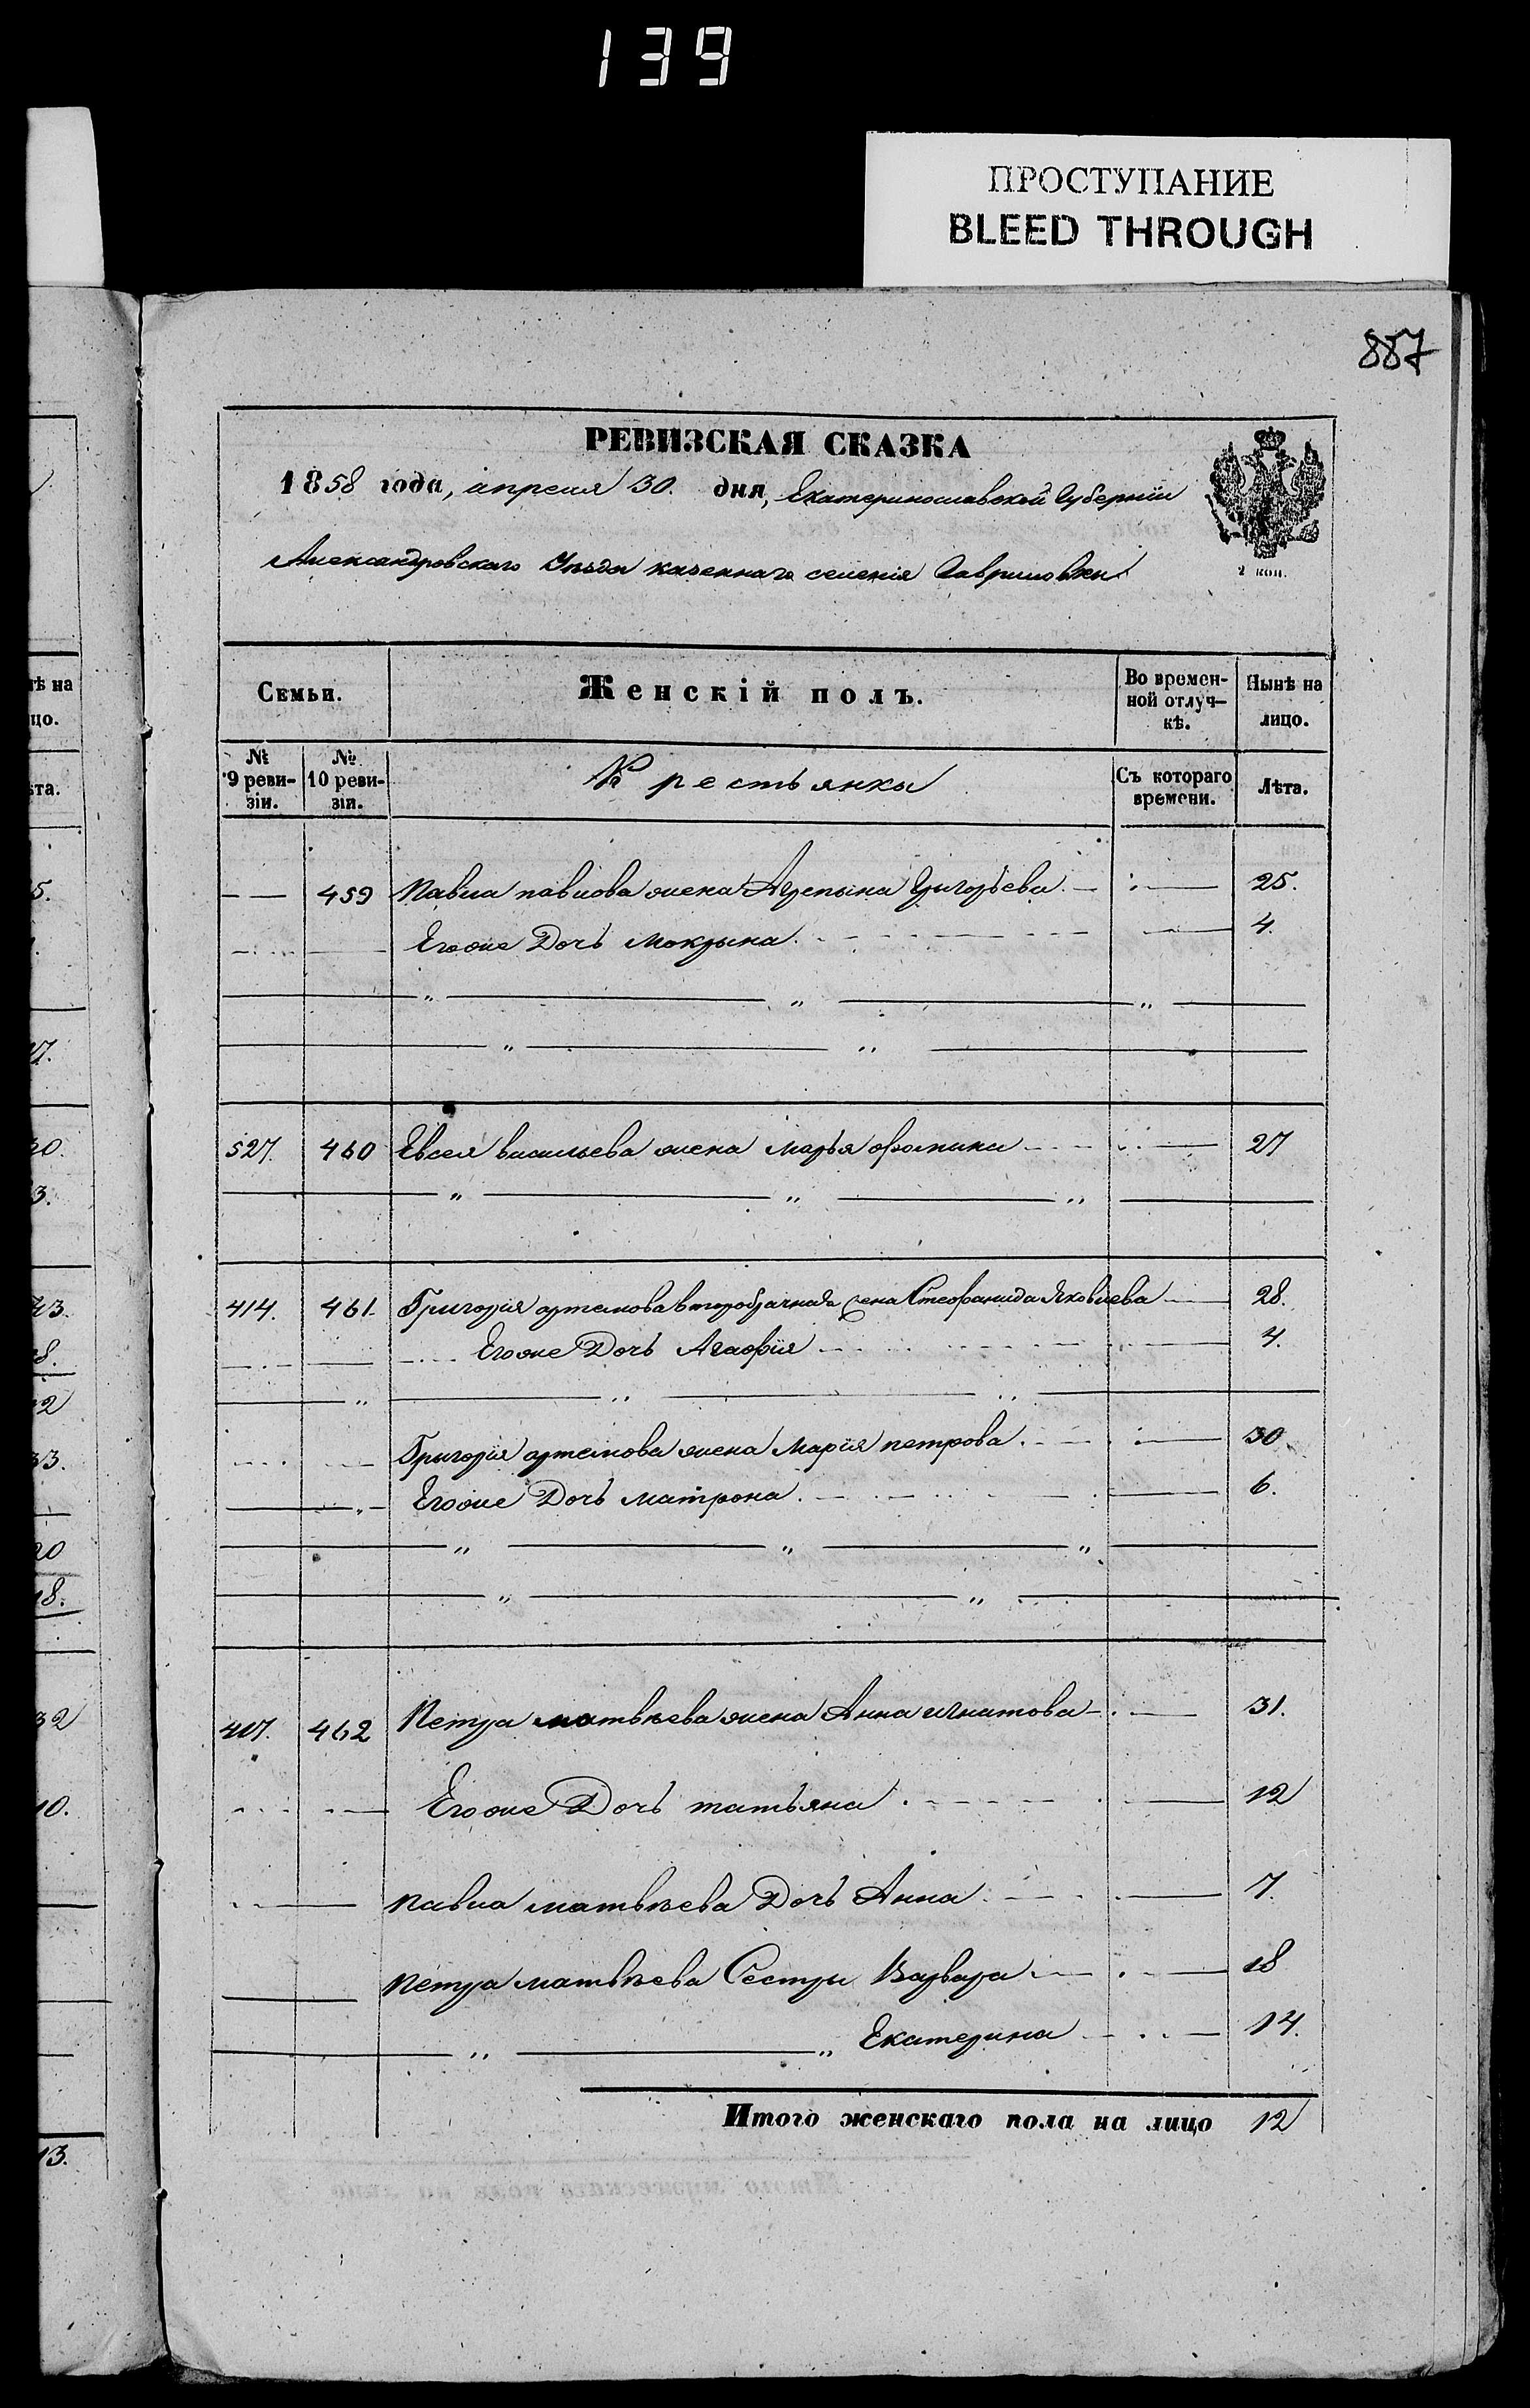 139
ПРОСТУПАНИЕ
BLEED THROUGH
887
РЕВИЗСКАЯ СКАЗКА
1858 года, апреля 30. дня, Екатеринославской Губерніи
Александровскаго Уѣзда казеннаго селенія Гавриловки
2 коп.
Семьи. Женскій полъ. Во времен- Нынѣ на
ной отлуч- лицо.
кѣ.
№ 9 реви- зіи. № 10 реви- зіи. Крестьянки Съ котораго времени. Лѣта.
459 Павла павлова жена Агрепына Григорьева 25.
Егоже Дочь Мокрына 4.
527. 460 Евсея васильева жена марья фомина 27
414. 461. Григорія артемова второбрачная жена Стефанида Яковлева 28.
Егоже Дочь Агафія 4.
Григорія артемова жена Марія петрова 30
Егоже Дочь матрона 6.
417. 462 Петра матвѣева жена Анна игнатова 31.
Егоже Дочь татьяна 12
павла матвѣева Дочь Анна 7.
петра матвѣева Сестры Варвара 18
Екатерина 14.
Итого женскаго пола на лицо 12
ѣ на
цо.
ѣта.
5.
17.
30.
3.
43.
18.
33.
20
18.
32
10.
13.